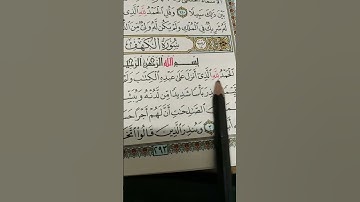 بين ذلك سبيلا وقل الحمد لله الذي
شريك في الملك ولم يكن له ولي من
سورة الكهف
بسم الله الرحمن الرحيم
الحمد لله الذي أنزل على عبده الكتاب ولم
بأسا شديدا من لدنه ويبشر
الصالحات أن لهم أجرا حسنا
وينذر الذين قالوا اتخذ
٢٩٣